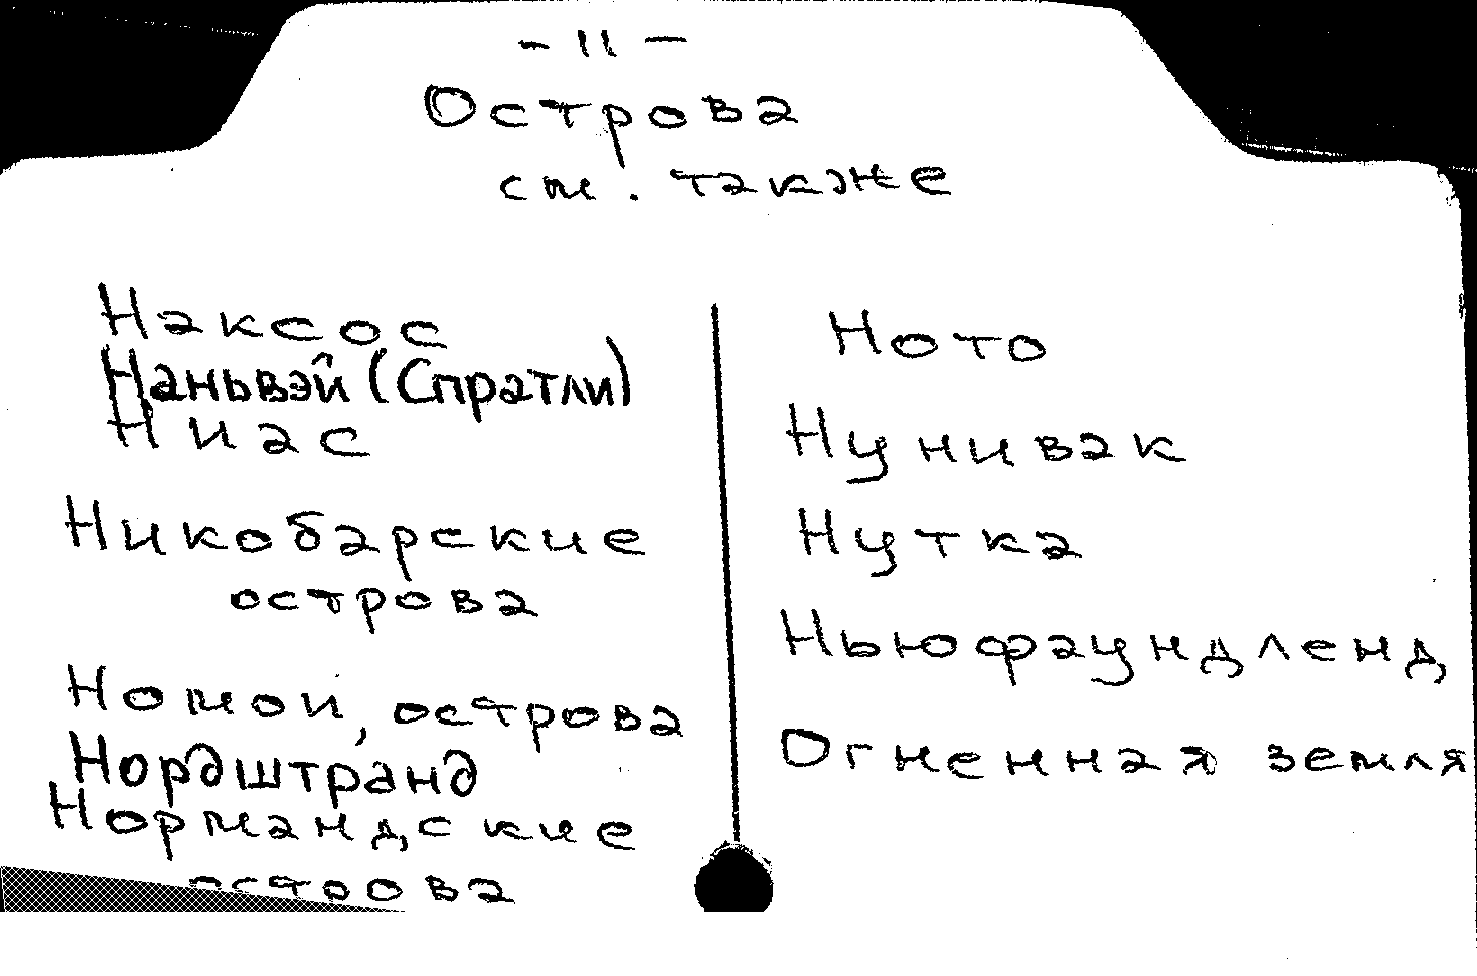 - 11 -
Острова
см. также
Наксос
Наньвэй (Спратли)
Ниас
Никобарские
острова
Номои, острова
Нордштранд
Нормандские
острова
Ното
Нунивак
Нутка
Ньюфаундленд
Огненная земля